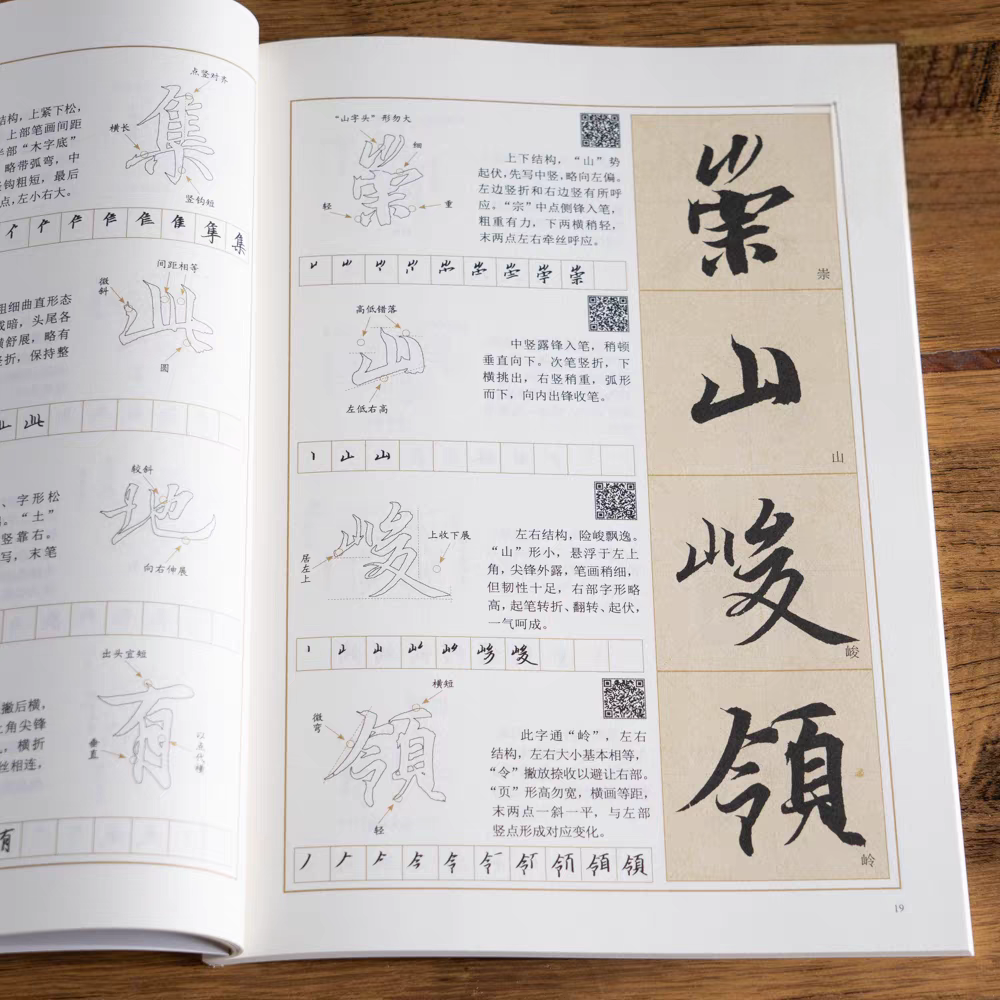 点竖对齐
横长
集
竖钩短
结构，上紧下松，
上部笔画间距
半部“木字底”
略带弧弯，中
竖钩粗短，最后
点，左小右大。
隹 集
间距相等
微斜
此
圆
粗细曲直形态
成暗，头尾各
横舒展，略有
竖折，保持整
此
较斜
地
向右伸展
、字形松
。“土”
竖靠右。
写，末笔
出头宜短
有
垂直
以点代横
撇后横，
上角尖锋
，横折
丝相连，
有
“山字头”形勿大
细
崇
轻
重
上下结构，“山”势
起伏，先写中竖，略向左偏。
左边竖折和右边竖有所呼
应。“宗”中点侧锋入笔，
粗重有力，下两横稍轻，
末两点左右牵丝呼应。
山 崇
崇
崇
高低错落
山
左低右高
中竖露锋入笔，稍顿
垂直向下。次笔竖折，下
横挑出，右竖稍重，弧形
而下，向内出锋收笔。
山
山
山
上收下展
峻
居左上
左右结构，险峻飘逸。
“山”形小，悬浮于左上
角，尖锋外露，笔画稍细，
但韧性十足，右部字形略
高，起笔转折、翻转、起伏，
一气呵成。
山 峻
峻
峻
横短
微弯
領
轻
此字通“岭”，左右
结构，左右大小基本相等，
“令”撇放捺收以避让右部。
“页”形高勿宽，横画等距，
末两点一斜一平，与左部
竖点形成对应变化。
令 領
領
岭
19